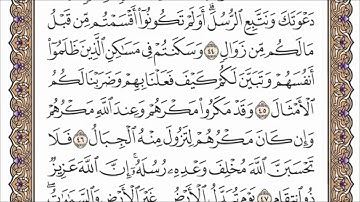 دَعْوَتَكَ وَنَتَّبِعِ ٱلرُّسُلَ ۗ أَوَلَمْ تَكُونُوٓا۟ أَقْسَمْتُم مِّن قَبْلُ
مَا لَكُم مِّن زَوَالٍ ٤٤ وَسَكَنتُمْ فِى مَسَـٰكِنِ ٱلَّذِينَ ظَلَمُوٓا۟
أَنفُسَهُمْ وَتَبَيَّنَ لَكُمْ كَيْفَ فَعَلْنَا بِهِمْ وَضَرَبْنَا لَكُمُ
ٱلْأَمْثَالَ ٤٥ وَقَدْ مَكَرُوا۟ مَكْرَهُمْ وَعِندَ ٱللَّهِ مَكْرُهُمْ
وَإِن كَانَ مَكْرُهُمْ لِتَزُولَ مِنْهُ ٱلْجِبَالُ ٤٦ فَلَا
تَحْسَبَنَّ ٱللَّهَ مُخْلِفَ وَعْدِهِۦ رُسُلَهُۥٓ ۗ إِنَّ ٱللَّهَ عَزِيزٌ
ذُو ٱنتِقَامٍ ٤٧ يَوْمَ تُبَدَّلُ ٱلْأَرْضُ غَيْرَ ٱلْأَرْضِ وَٱلسَّمَـٰوَٰتُ ۖ